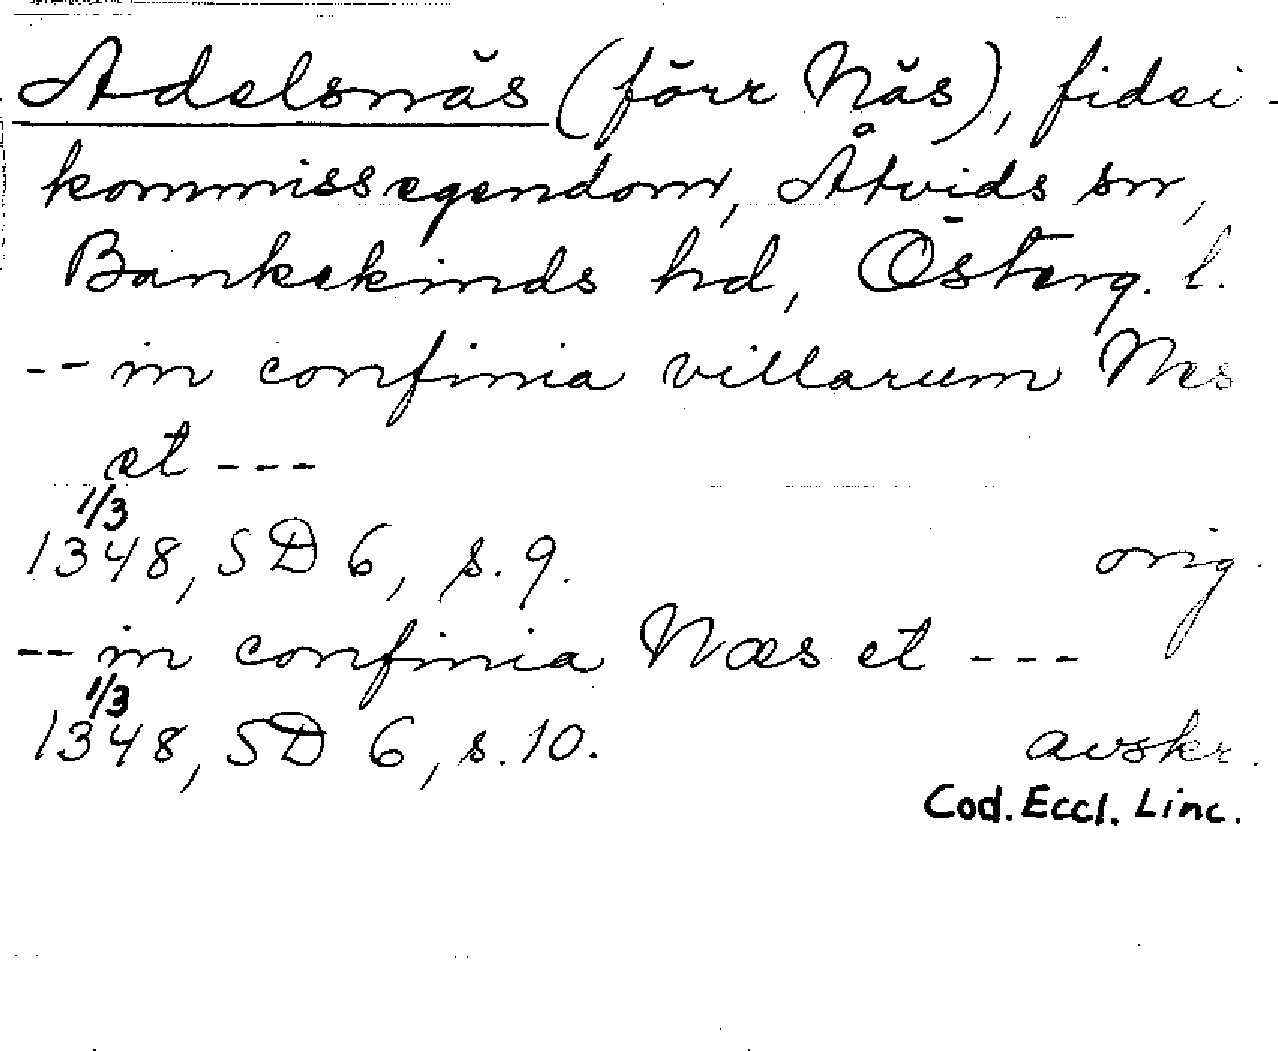 Adelsnäs (förr Näs), fidei-
kommissegendom, Åtvids sn,
Bankekinds hd, Österg. l.
-- in confinia villarum Nes
et ---
1/3
1348, SD 6, s. 9. orig.
-- in confinia Næs et ---
1/3
1348, SD 6, s. 10. avskr.
Cod. Eccl. Linc.